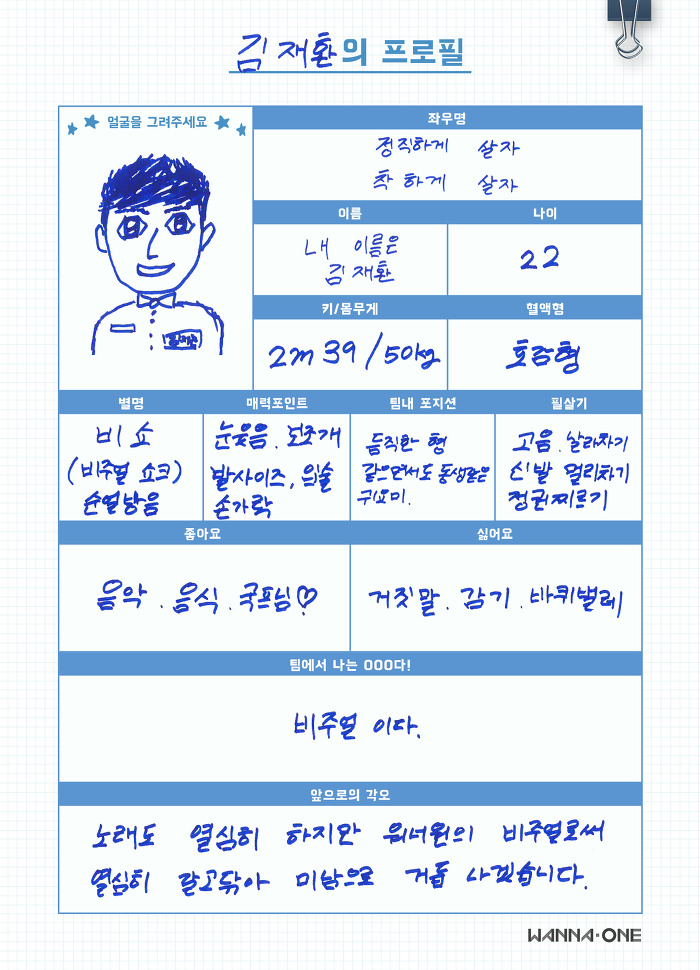 김재환의 프로필
얼굴을 그려주세요
좌우명
정직하게 살자
착하게 살자
이름
나이
내 이름은
김재환
22
키/몸무게
혈액형
2m 39 / 50kg
호감형
별명
매력포인트
팀내 포지션
필살기
비쇼
(비주얼 쇼크)
순열맘음
눈웃음, 보조개
발사이즈, 입술
손가락
듬직한 형
같으면서도 동생같은
귀요미.
고음, 날라차기
신발 멀리차기
정권찌르기
좋아요
싫어요
음악, 음식, 국프님♡
거짓말, 감기, 바퀴벌레
팀에서 나는 OOO다!
비주얼 이다.
앞으로의 각오
노래도 열심히 하지만 워너원의 비주얼로써
열심히 갈고닦아 미남으로 거듭 나겠습니다.
WANNA·ONE